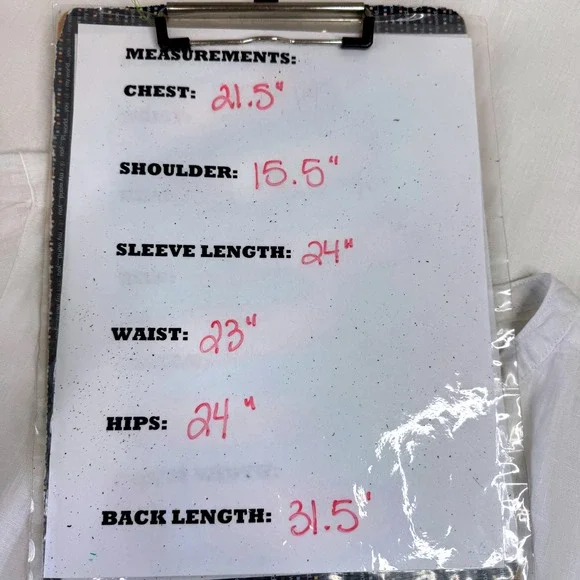 MEASUREMENTS:
CHEST: 21.5"
SHOULDER: 15.5"
SLEEVE LENGTH: 24"
WAIST: 23"
HIPS: 24"
BACK LENGTH: 31.5"